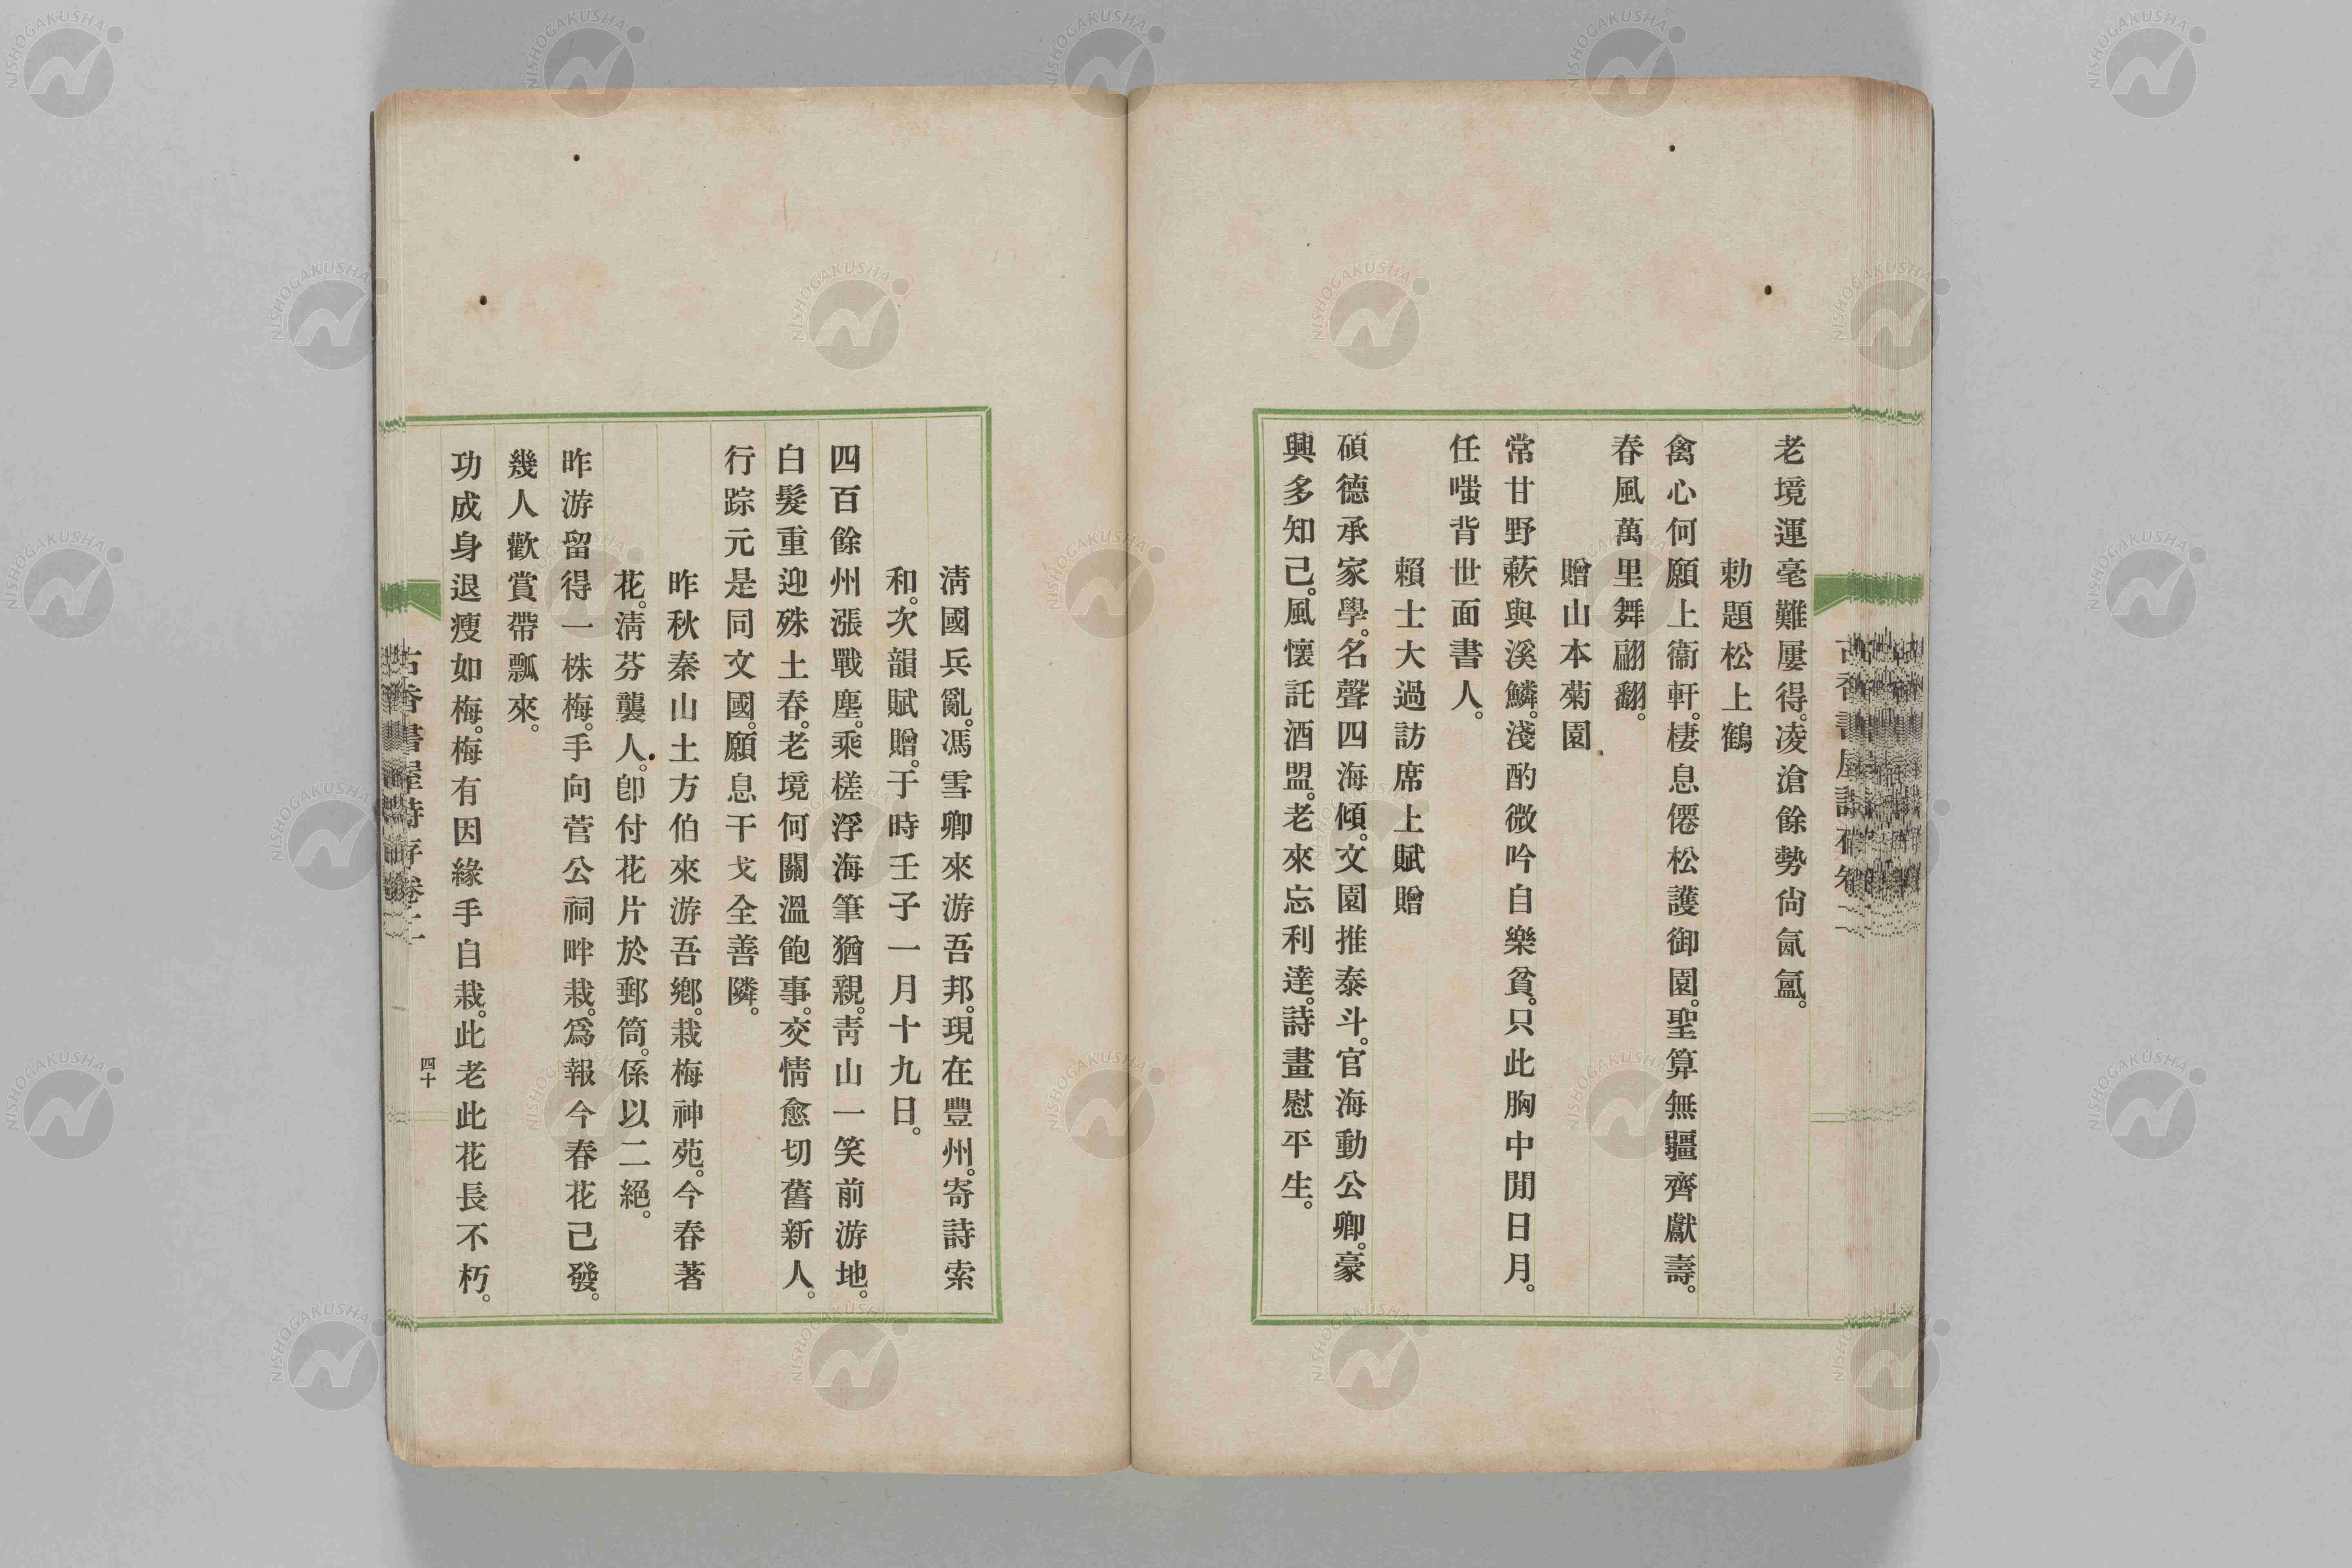 老境運毫難屢得。凌滄餘勢尙氤氳。
勅題松上鶴
禽心何願上衞軒。棲息僊松護御園。聖算無疆齊獻壽。
春風萬里舞翩翻。
贈山本菊園
常甘野蔌與溪鱗。淺酌微吟自樂貧。只此胸中閒日月。
任嗤背世面書人。
賴士大過訪席上賦贈
碩德承家學。名聲四海傾。文園推泰斗。官海動公卿。豪
興多知己。風懷託酒盟。老來忘利達。詩畫慰平生。
淸國兵亂。馮雪卿來游吾邦。現在豐州。寄詩索
和。次韻賦贈。于時壬子一月十九日。
四百餘州漲戰塵。乘槎浮海筆猶親。靑山一笑前游地。
白髮重迎殊土春。老境何關溫飽事。交情愈切舊新人。
行踪元是同文國。願息干戈全善隣。
昨秋秦山土方伯來游吾鄕。栽梅神苑。今春著
花。淸芬襲人。卽付花片於郵筒。係以二絕。
昨游留得一株梅。手向菅公祠畔栽。爲報今春花己發。
幾人歡賞帶瓢來。
功成身退瘦如梅。梅有因緣手自栽。此老此花長不朽。
古香書屋詩存卷二
四十
NISHOGAKUSHA